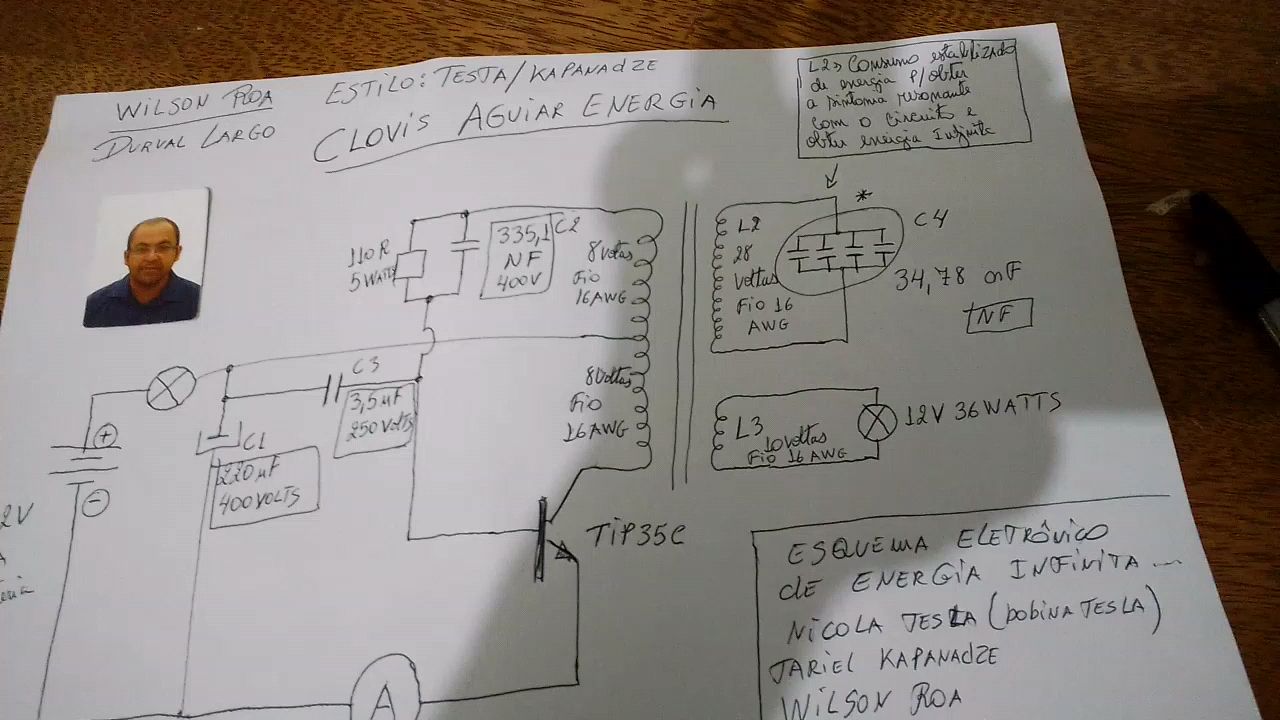 WILSON ROA
DURVAL LARGO
ESTILO: TESTA/KAPANADZE
CLOVIS AGUIAR ENERGIA
L2 → Consumo estabilizado
de energia P/obter
a sintonia resonante
com o Circuito e
obter energia Infinita
110 R
5 WATTS
335,1
NF
400V
C2
8 voltas
Fio
16 AWG
L2
28
voltas
Fio 16
AWG
*
C4
34,78 nF
NF
C3
3,5 µF
250 VOLTS
8 Voltas
Fio
16 AWG
L3
10 voltas
Fio 16 AWG
12V 36 WATTS
+
C1
220 µF
400 VOLTS
−
2V
A
TIP35C
A
ESQUEMA ELETRÔNICO
de ENERGIA INFINITA ...
NICOLA TESLA (bobina TESLA)
TARIEL KAPANADZE
WILSON ROA